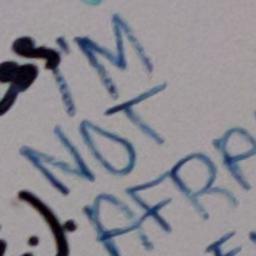 I'M
NOT
AFRA